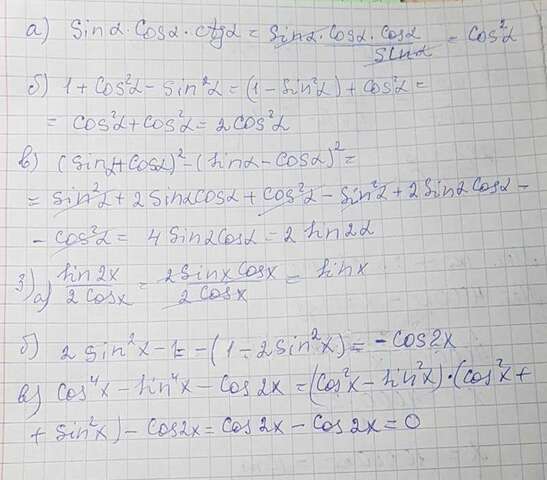 а) sinα·cosα·ctgα = sinα·cosα·cosα / sinα = cos²α
б) 1+cos²α-sin²α=(1-sin²α)+cos²α=
= cos²α+cos²α=2cos²α
в) (sinα+cosα)²-(sinα-cosα)²=
= sin²α+2sinαcosα+cos²α-sin²α+2sinαcosα-
-cos²α= 4sinαcosα=2sin2α
3) а) sin2x / 2cosx = 2sinxcosx / 2cosx = sinx
б) 2sin²x-1=-(1-2sin²x)=-cos2x
в) cos⁴x-sin⁴x-cos2x=(cos²x-sin²x)·(cos²x+
+sin²x)-cos2x=cos2x-cos2x=0